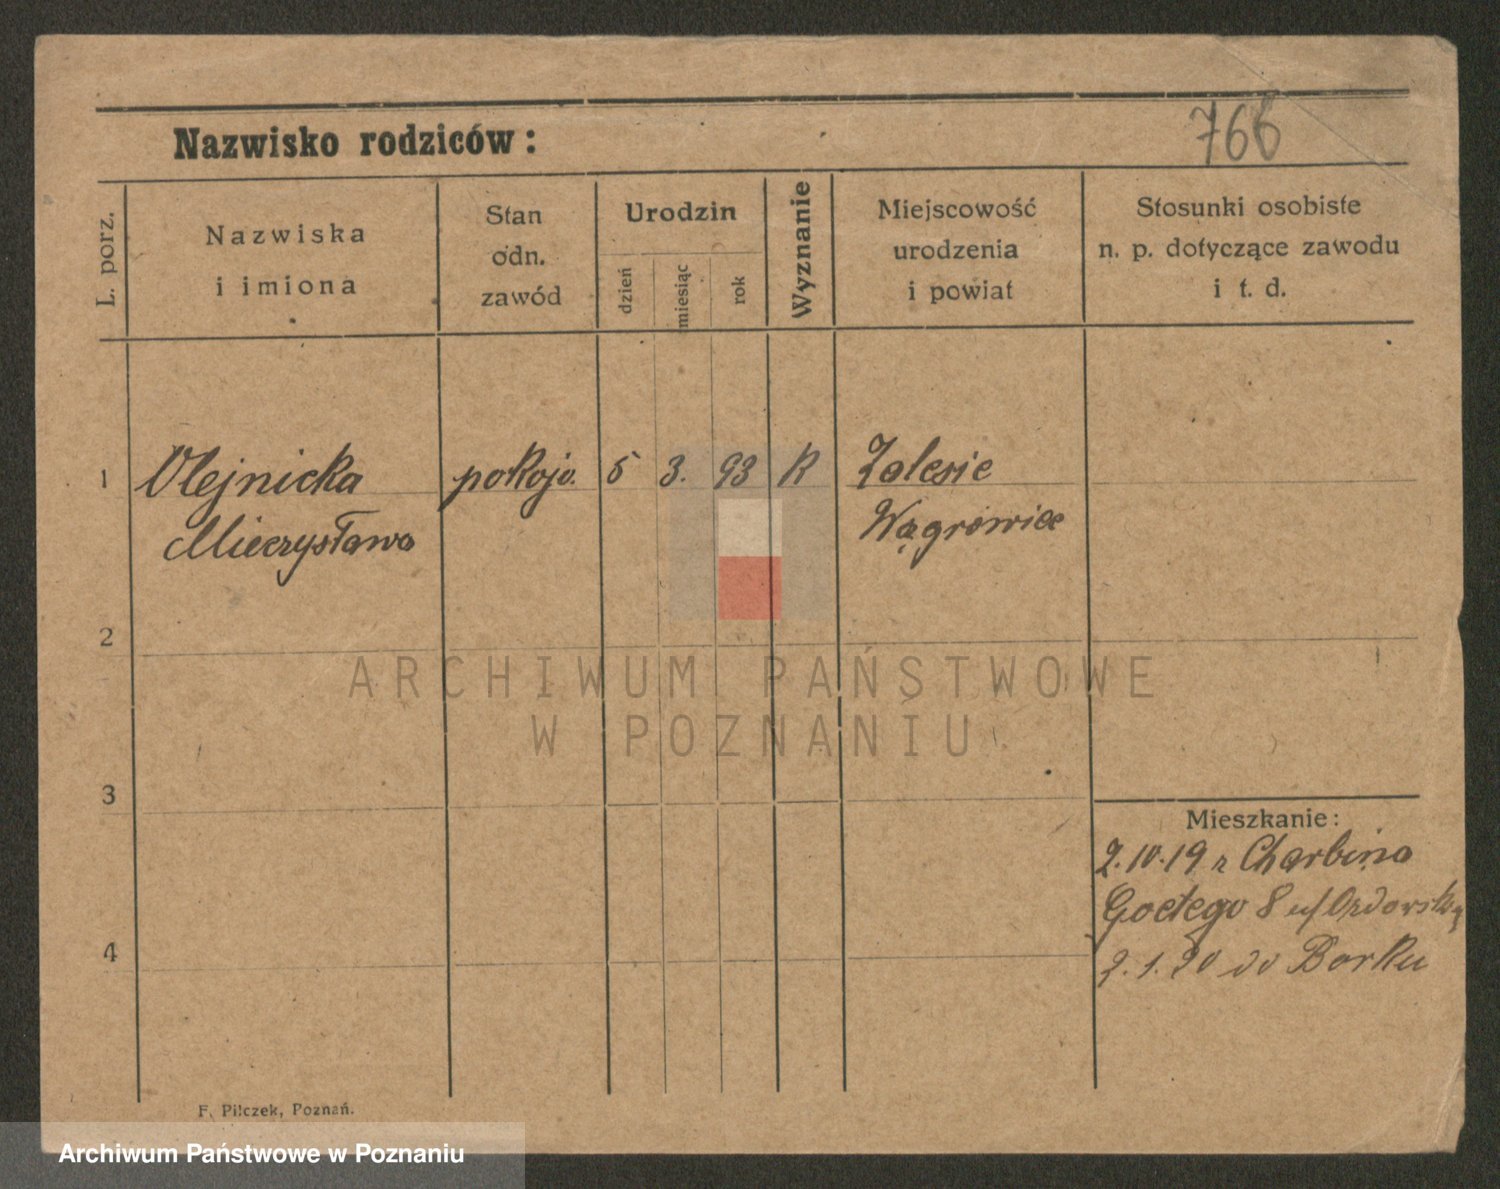 766
Nazwisko rodziców:
L. porz.
Nazwiska
i imiona
Stan
odn.
zawód
Urodzin
dzień
miesiąc
rok
Wyznanie
Miejscowość
urodzenia
i powiat
Stosunki osobiste
n. p. dotyczące zawodu
i t. d.
1 Olejnicka pokojo. 5 3. 93 R Zalesie
Mieczysława Wągrówiec
2
ARCHIWUM PAŃSTWOWE
W POZNANIU
3
Mieszkanie:
2.10.19 z Charbina
Goetego 8 u/
4
2.1.20 do Borku
F. Pilczek, Poznań.
Archiwum Państwowe w Poznaniu